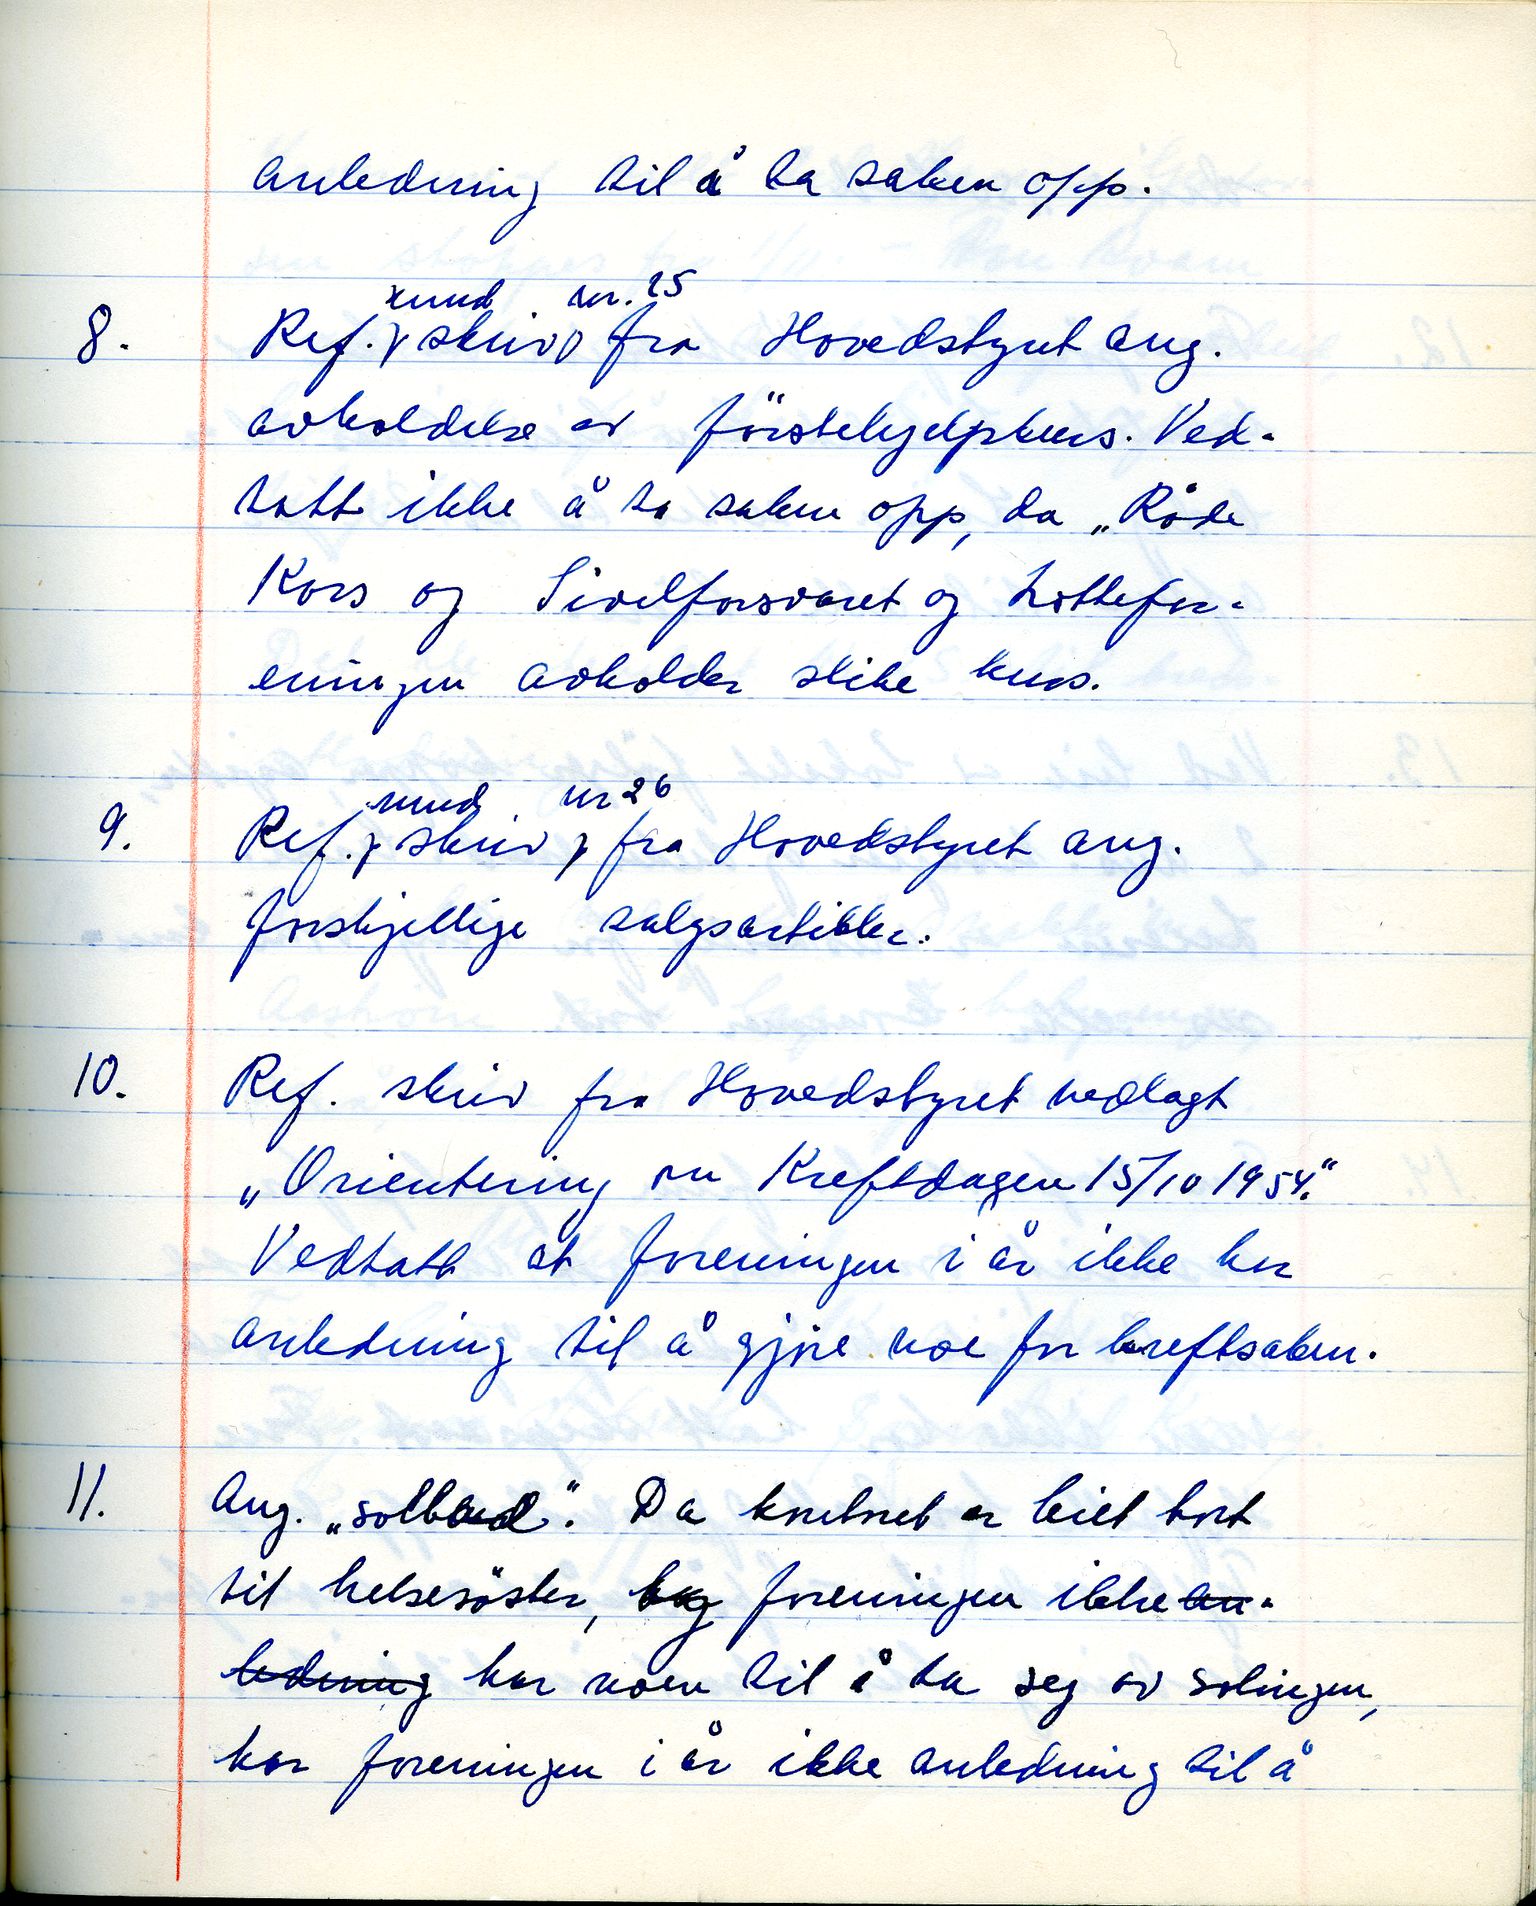 anledning til å ta saken opp.
8. Ref. rundskriv nr. 25 fra Hovedstyret ang.
avholdelse av förstehjelpkurs. Ved-
tatt ikke å ta saken opp, da „Röde
Kors og Sivilforsvaret og Lottefor-
eningen avholder slike kurs.
9. Ref. rundskriv nr 26 fra Hovedstyret ang.
forskjellige salgsartikler.
10. Ref. skriv fra Hovedstyret vedlagt
„Orientering om Kreftdagen 15/10 1954."
Vedtatt at foreningen i år ikke har
anledning til å gjöre noe for kreftsaken.
11. Ang. „solbad". Da kontoret er leiet bort
til helsesöster, og foreningen ikke an-
ledning har noen til å ta seg av solingen,
har foreningen i år ikke anledning til å